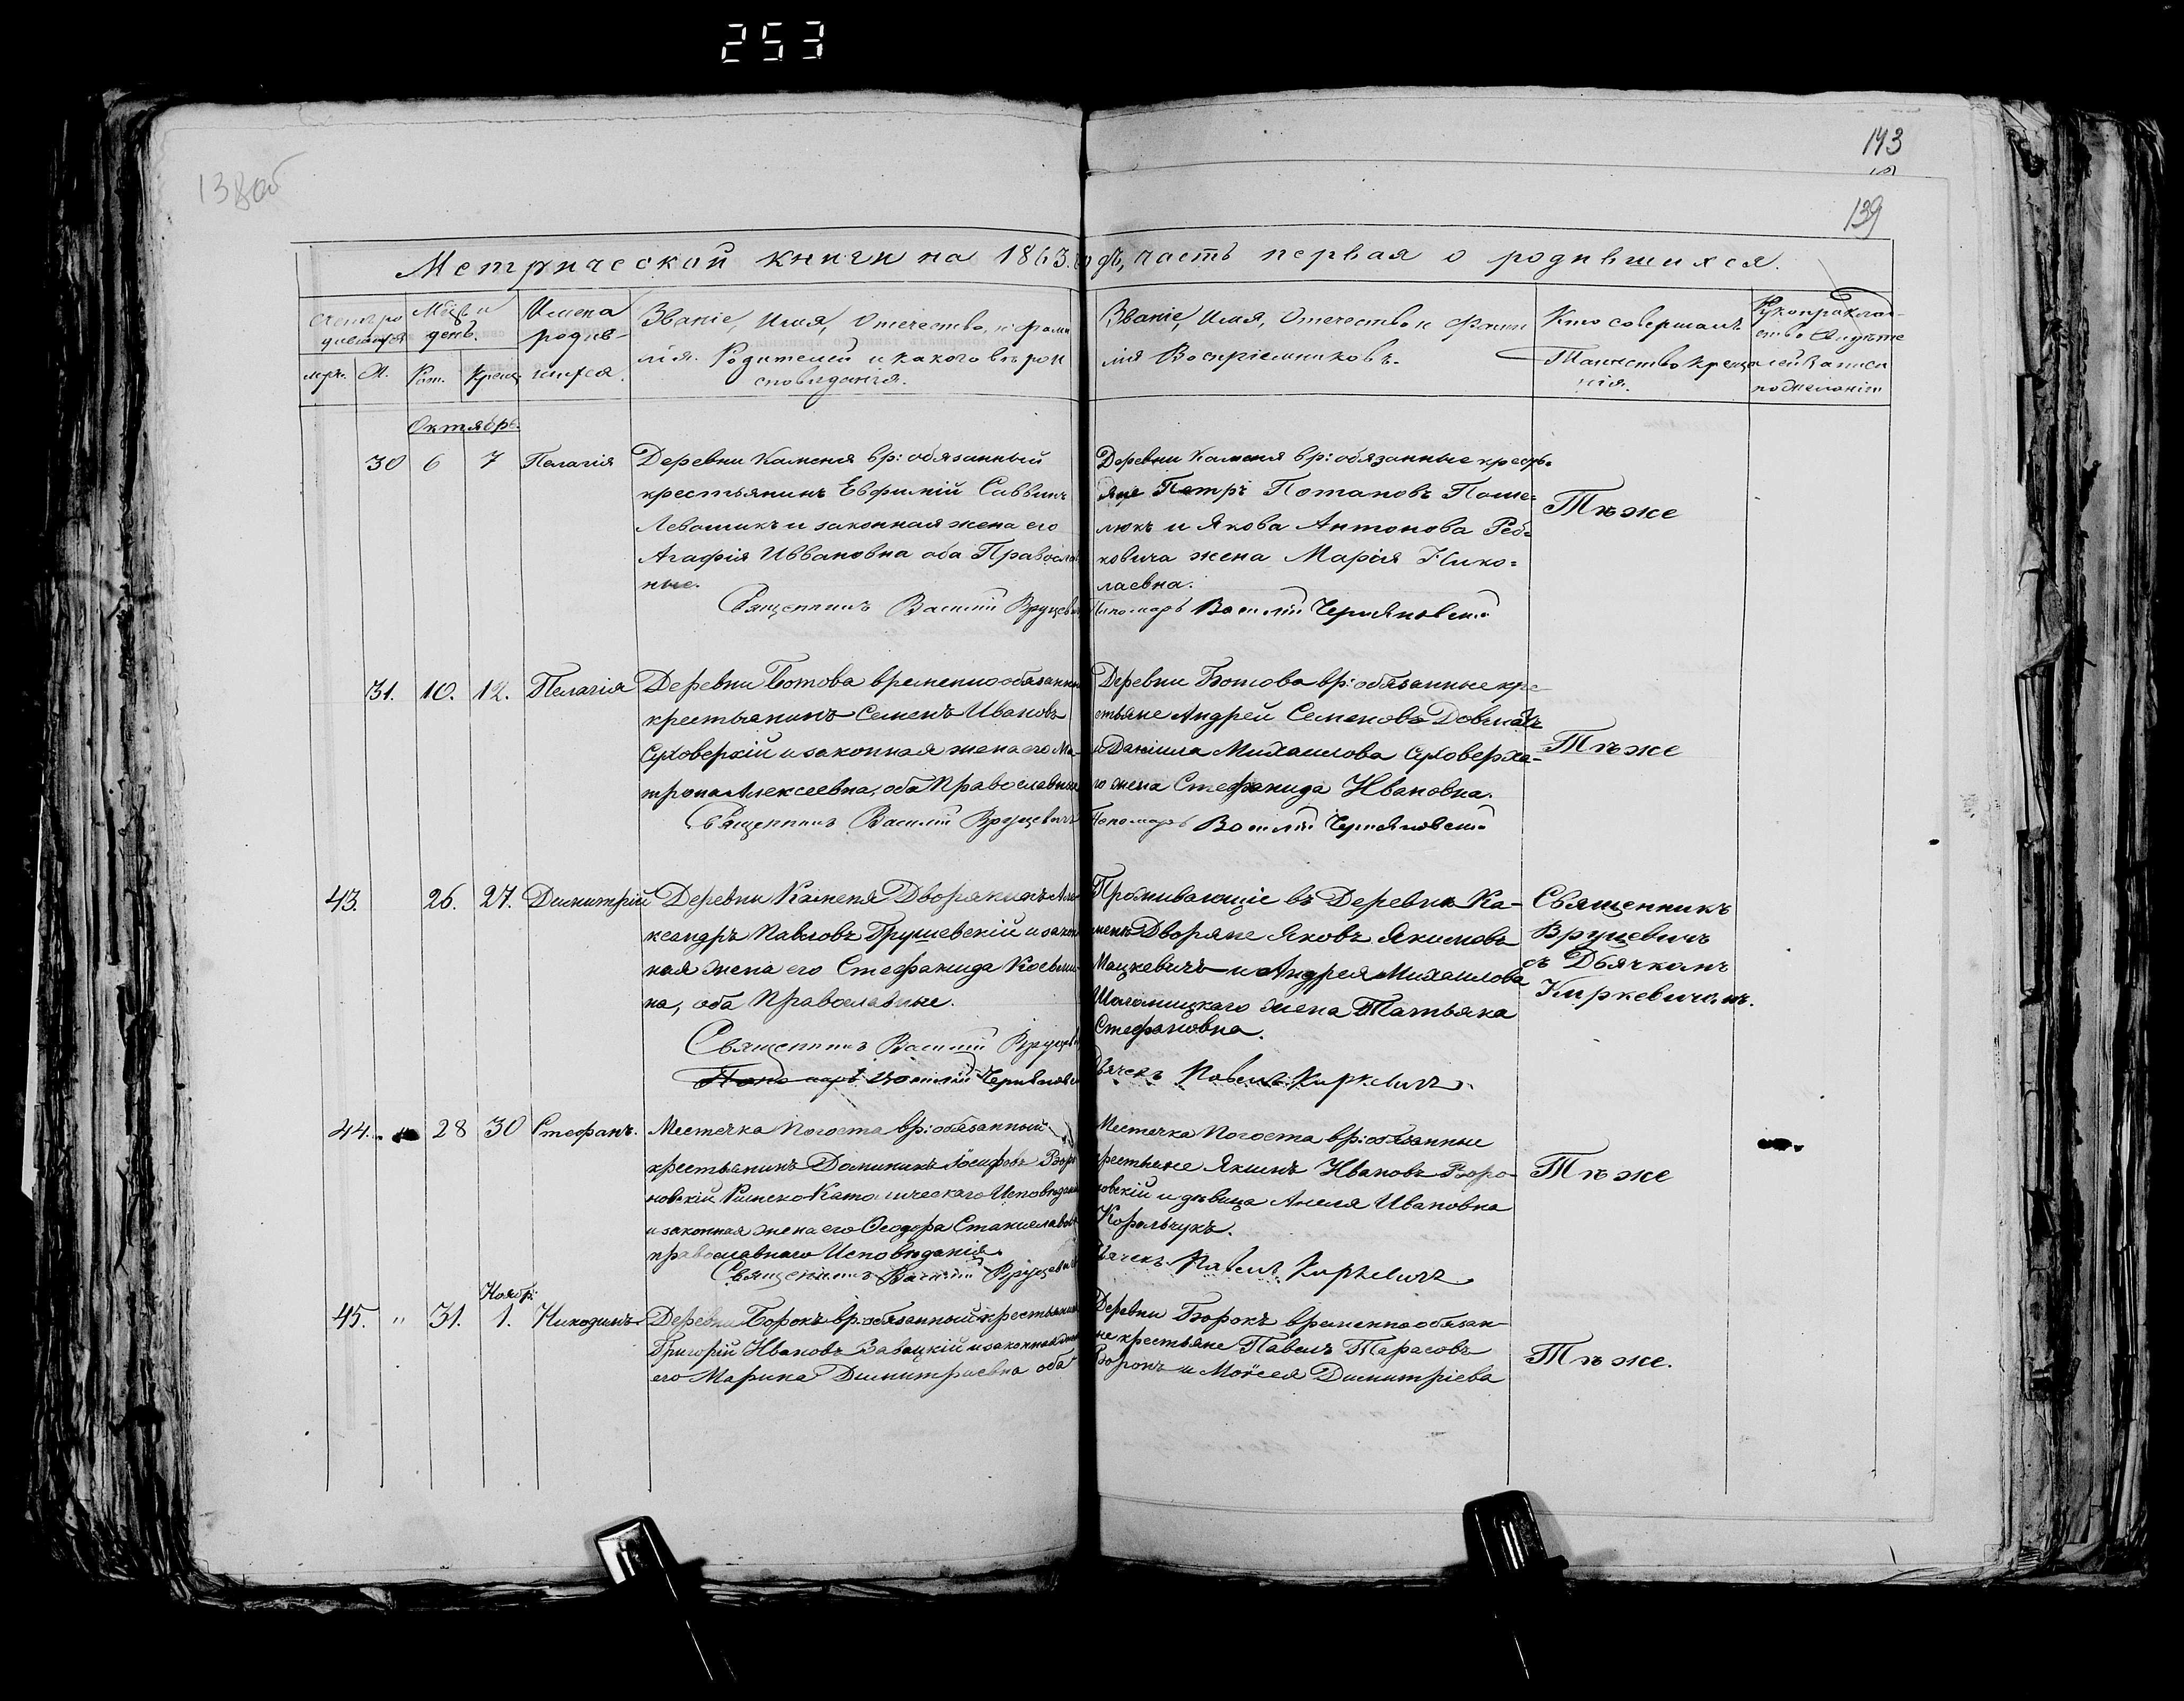 253
138об
143
139
Метрической книги на 1863. годъ, часть первая о родившихся.
Мѣсяцъ и день.
Рож.
Крещ.
М.
Имена родив-
шихся.
Званіе, Имя, Отечество, и фами
лія Родителей и какого вѣрои
сповѣданія.
Званіе, Имя, Отечество и Фами
лія Воспріемниковъ.
Кто совершалъ
Таинство креще
нія.
Рукоприклад
ство
записи
по желанію
Октябрь.
30 6 7 Пелагія
Деревни Каменя вр: обязанный
крестьянинъ Евфимій Саввинъ
Левашикъ и законная жена его
Агафія Ивановна оба Православ
ные.
Священникъ Василій Вруцевичъ
Деревни Каменя вр: обязанные кресть=
яне Петръ Потаповъ Поше=
люкъ и Якова Антонова Реб=
ковича жена Марія Нико=
лаевна.
Пономарь Василій Черняковскій
Тѣ же
31. 10. 12. Пелагія
Деревни Ботова временнообязанный
крестьянинъ Семенъ Ивановъ
Суховерхій и законная жена его Ма-
трона Алексеевна, оба Православные
Священникъ Василій Вруцевичъ
Деревни Ботова вр: обязанные кре-
стьяне Андрей Семеновъ
и Даніила Михаилова Суховерха-
го жена Стефанида Ивановна.
Пономарь Василій Черняковскій
Тѣ же
43. 26. 27. Димитрій
Деревни Каменя Дворянинъ Але
ксандръ Павловъ Грушевскій и закон
ная жена его Стефанида Косьми-
на, оба Православные.
Священникъ Василій Вруцевичъ
Пономарь Василій Черняковскій
Проживающіе въ Деревни Ка-
мень Дворяне Яковъ Якимовъ
Мацкевичъ и Андрея Михаилова
жена Татьяна
Стефановна.
Дьячекъ Павелъ Киркевичъ.
Священникъ
Вруцевичъ
съ Дьячкомъ
Киркевичемъ.
44. " 28 30 Стефанъ.
Местечка Погоста вр: обязанный
крестьянинъ Доминикъ Іосифовъ Воро
новскій Римско Католическаго Исповѣданія
и законная жена его Ѳеодора Станиславова
православнаго Исповѣданія.
Священникъ Василій Вруцевичъ
Местечка Погоста вр: обязанные
крестьяне Якимъ Ивановъ Воро-
новскій и дѣвица Анеля Ивановна
Корольчукъ.
Дьячекъ Павелъ Киркевичъ
Тѣ же
Ноябр:
45. " 31. 1. Никодимъ
Деревни Борокъ вр: обязанный крестьянинъ
Григорій Ивановъ Завацкій и законная жена
его Марина Димитріевна оба
Деревни Борокъ временнообязан-
не крестьяне Павелъ Тарасовъ
Воронъ и Моѵсея Димитріева
Тѣ же.